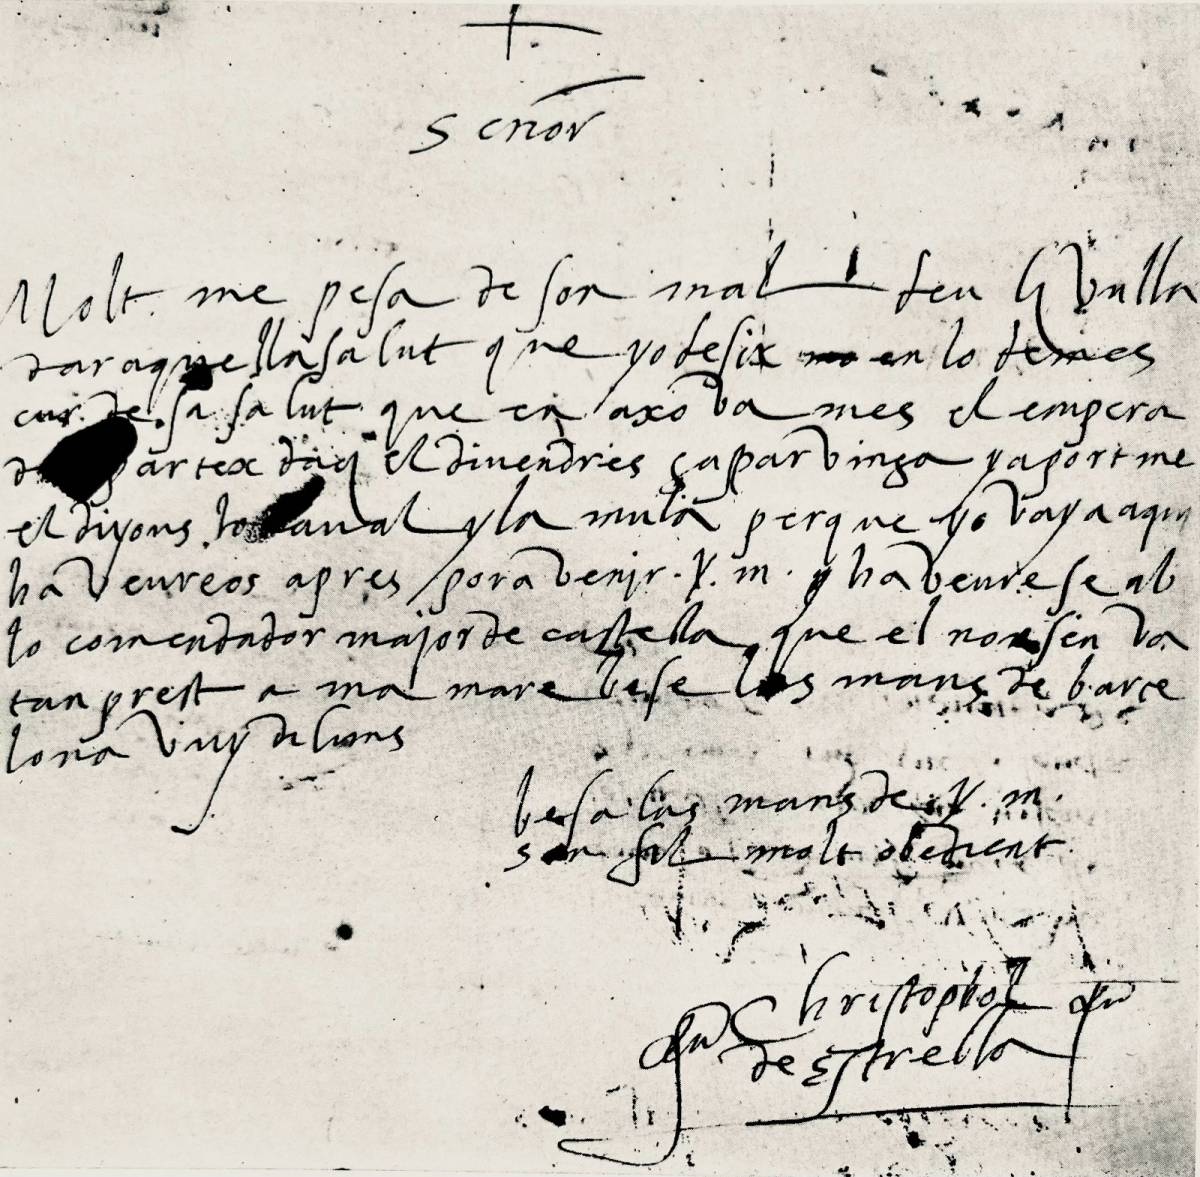 +
Señor
Molt me pesa de son mal deu li vulla
dar aquella salut que yo desix en lo demes
cur de sa salut que en axo va mes el empera
partex daq el divendres gaspar vinga y aport me
el diyons lo caval y la mula perque yo vaya aqui
ha veureos apres pora venir . V . m . y ha veure se ab
lo comendador major de castella que el no sen va
tan prest a ma mare bese las mans de barce
lona vuy diluns
besa las mans de . V . m .
son fil molt obedient
Christophol
de Estrella